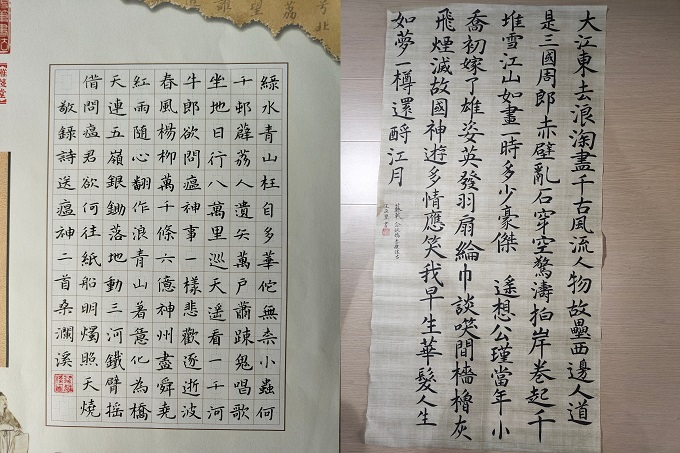 綠水青山枉自多華佗無柰小蟲何
千邨薜荔人遺矢萬戶蕭疎鬼唱歌
坐地日行八萬里巡天遥看一千河
牛郎欲問瘟神事一樣悲歡逐逝波
春風楊柳萬千條六億神州盡舜堯
紅雨隨心翻作浪青山著意化為橋
天連五嶺銀鋤落地動三河鐵臂摇
借問瘟君欲何往紙船明燭照天燒
敬録詩送瘟神二首桑瀾溪
大江東去浪淘盡千古風流人物故壘西邊人道
是三國周郎赤壁亂石穿空驚濤拍岸卷起千
堆雪江山如畫一時多少豪傑 遥想公瑾當年小
喬初嫁了雄姿英發羽扇綸巾談笑間檣櫓灰
飛煙滅故國神遊多情應笑我早生華髮人生
如夢一樽還酹江月